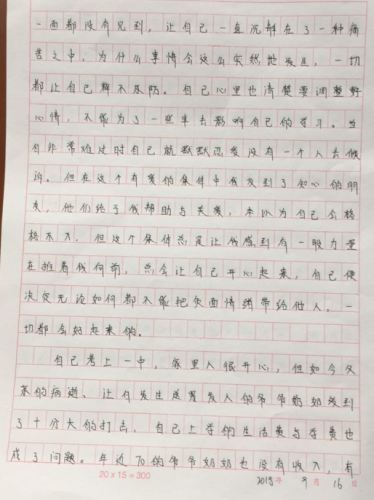 一面都没有见到，让自己一直沉醉在了一种痛
苦之中，为什么事情会这么突然地发生，一切
都让自己猝不及防。自己心里也清楚要调整好
心情，不能为了一些事去影响自己的学习。当
自己非常难过时自己就默默忍受没有一个人去倾
诉。但在这个有爱的集体中我交到了知心的朋
友，他们给了我帮助与关爱，本以为自己会格
格不入，但这个集体总是让我感到有一股力量
在推着我向前，总会让自己开心起来，自己便
决定无论如何都不能把负面情绪带给他人，一
切都会好起来的。
自己考上一中，家里人很开心，但如今父
亲的病逝，让白发生送黑发人的爷爷奶奶受到
了十分大的打击，自己上学的生活费与学费也
成了问题。年近70的爷爷奶奶也没有收入，有
20×15=300
2019年 9月 16日